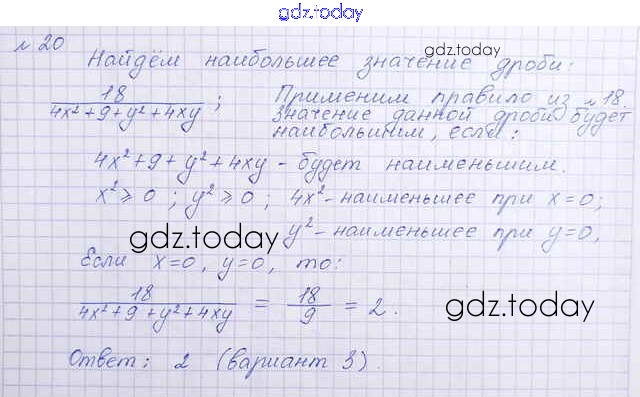 gdz.today
№ 20
Найдём наибольшее значение дроби:
gdz.today
18 / 4x²+9+y²+4xy ; Применим правило из №18.
Значение данной дроби будет
наибольшим, если:
4x²+9+y²+4xy - будет наименьшим.
x²≥0 ; y²≥0 ; 4x² - наименьшее при x=0;
gdz.today y² - наименьшее при y=0,
Если x=0, y=0, то:
18 / 4x²+9+y²+4xy = 18 / 9 = 2.
gdz.today
Ответ: 2 (вариант 3).